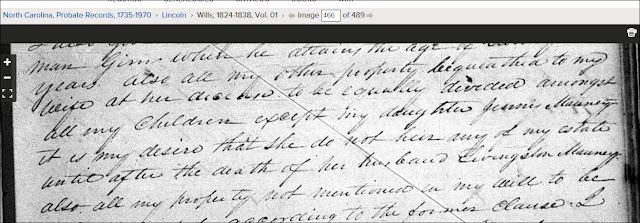 North Carolina, Probate Records, 1735-1970 › Lincoln › Wills, 1824-1838, Vol. 01 › Image 466 of 489
man Gims when he attains the age of
years. also all my other property bequeathed to my
wife at her decease to be equally divided amongst
all my Children except my daughter Jenny Mauney
it is my desire that she do not heir any of my estate
until after the death of her husband Livingston Mauney
also all my property not mentioned in my will to be
according to the former clause. I